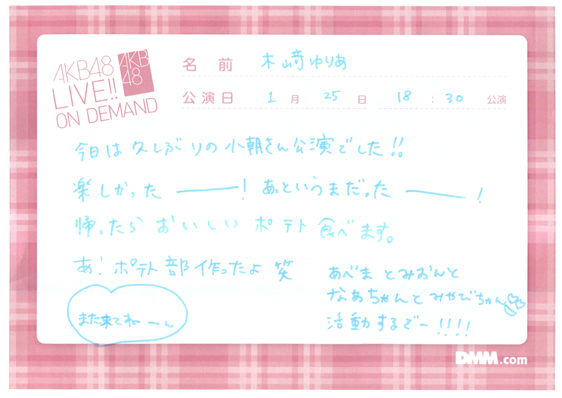 AKB48
LIVE!!
ON DEMAND
AKB
48
名前 木﨑ゆりあ
公演日 1月25日 18:30公演
今日は久しぶりの小朝さん公演でした!!
楽しかったーーー! あっというまだったーーー!
帰ったらおいしいポテト食べます。
あ! ポテト部作ったよ 笑
あべまとみおんと
なあちゃんとみやびちゃん
活動するでー!!!!
また来てねーーん
DMM.com